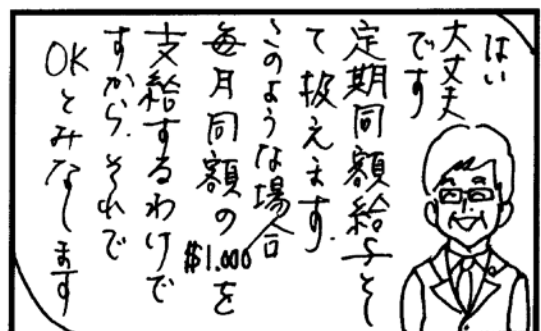 はい
大丈夫
です
定期同額給与とし
て扱えます。
このような場合
毎月同額の
$1,000を
支給するわけで
すから、それで
OKとみなします